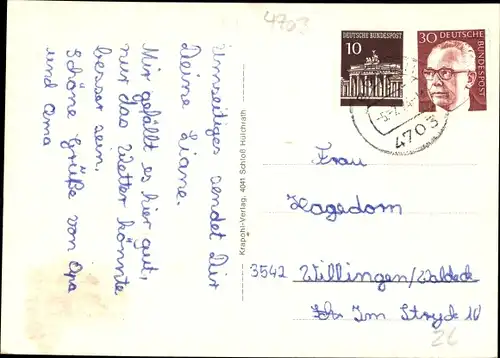 4703
Umseitiges sendet Dir
Deine Liane.
Mir gefällt es hier gut,
nur das Wetter könnte
besser sein,
schöne Grüße von Opa
und Oma
Krapohl-Verlag, 4041 Schloß Hülchrath
DEUTSCHE BUNDESPOST
10
30 DEUTSCHE
BUNDESPOST
4703
Frau
Hagedorn
3542 Willingen/Waldeck
Im Stryck 10
26